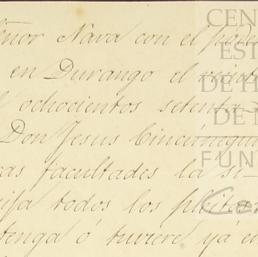 enor Nava con el pode
en Durango el veinte
ochocientos setenta
Don Jesus Cincunegui
as facultades la si-
ija todos los
tenga ó tuviere, ya e
CEN
ES
DE H
DE
FUN